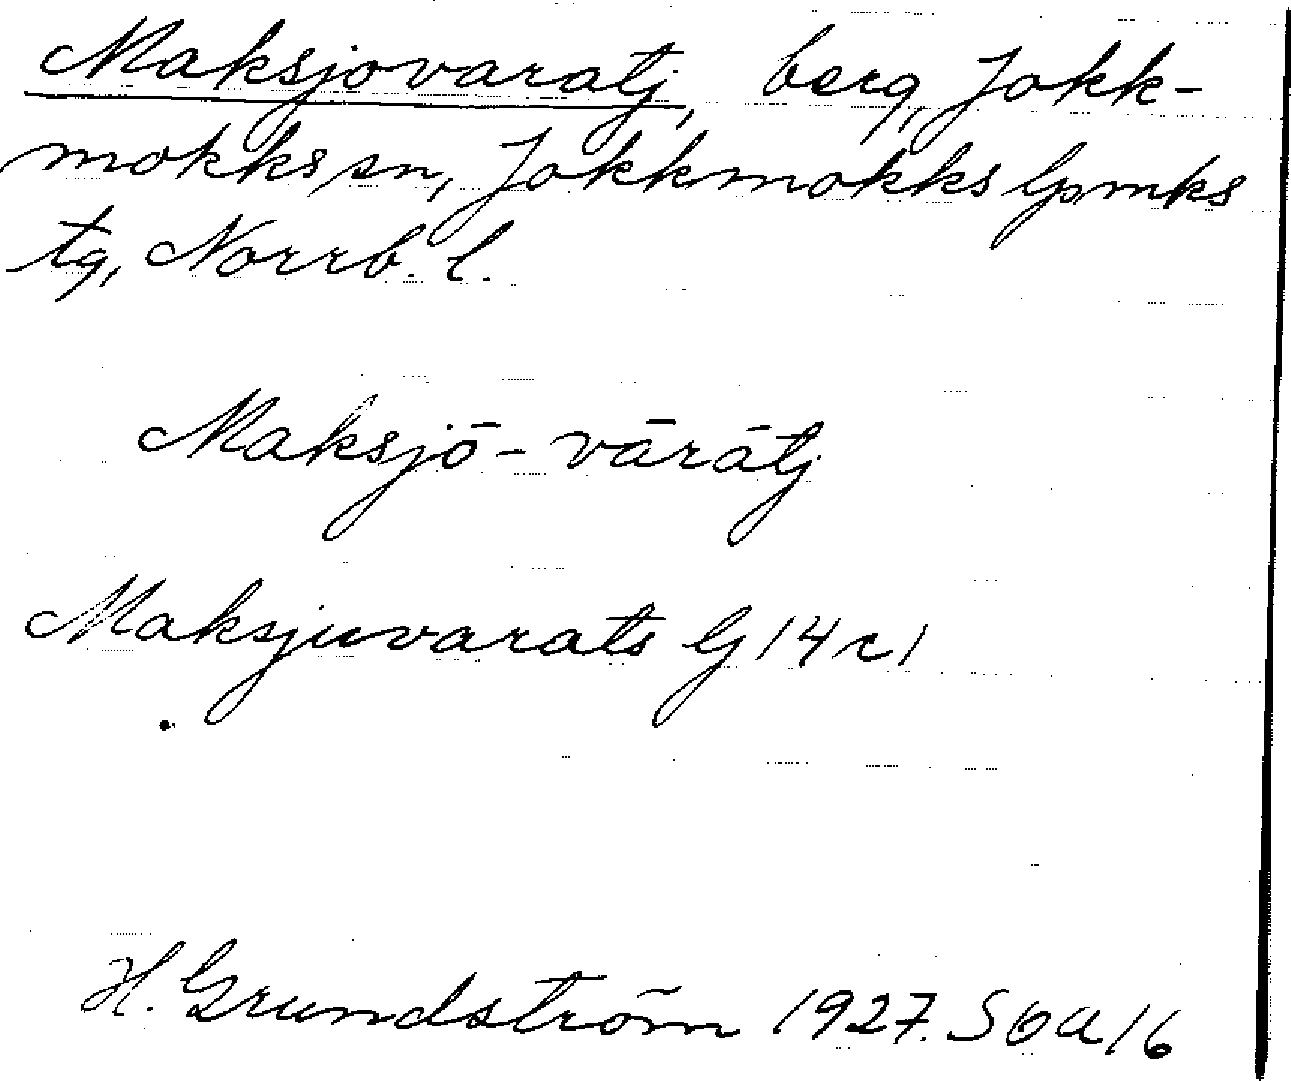 Maksjovaratj, berg, Jokk-
mokks sn, Jokkmokks lpmks
tg, Norrb. l.
Maksjō-vārātj
Maksjuvarats G 14 c 1
H. Grundström 1927. SOA 16